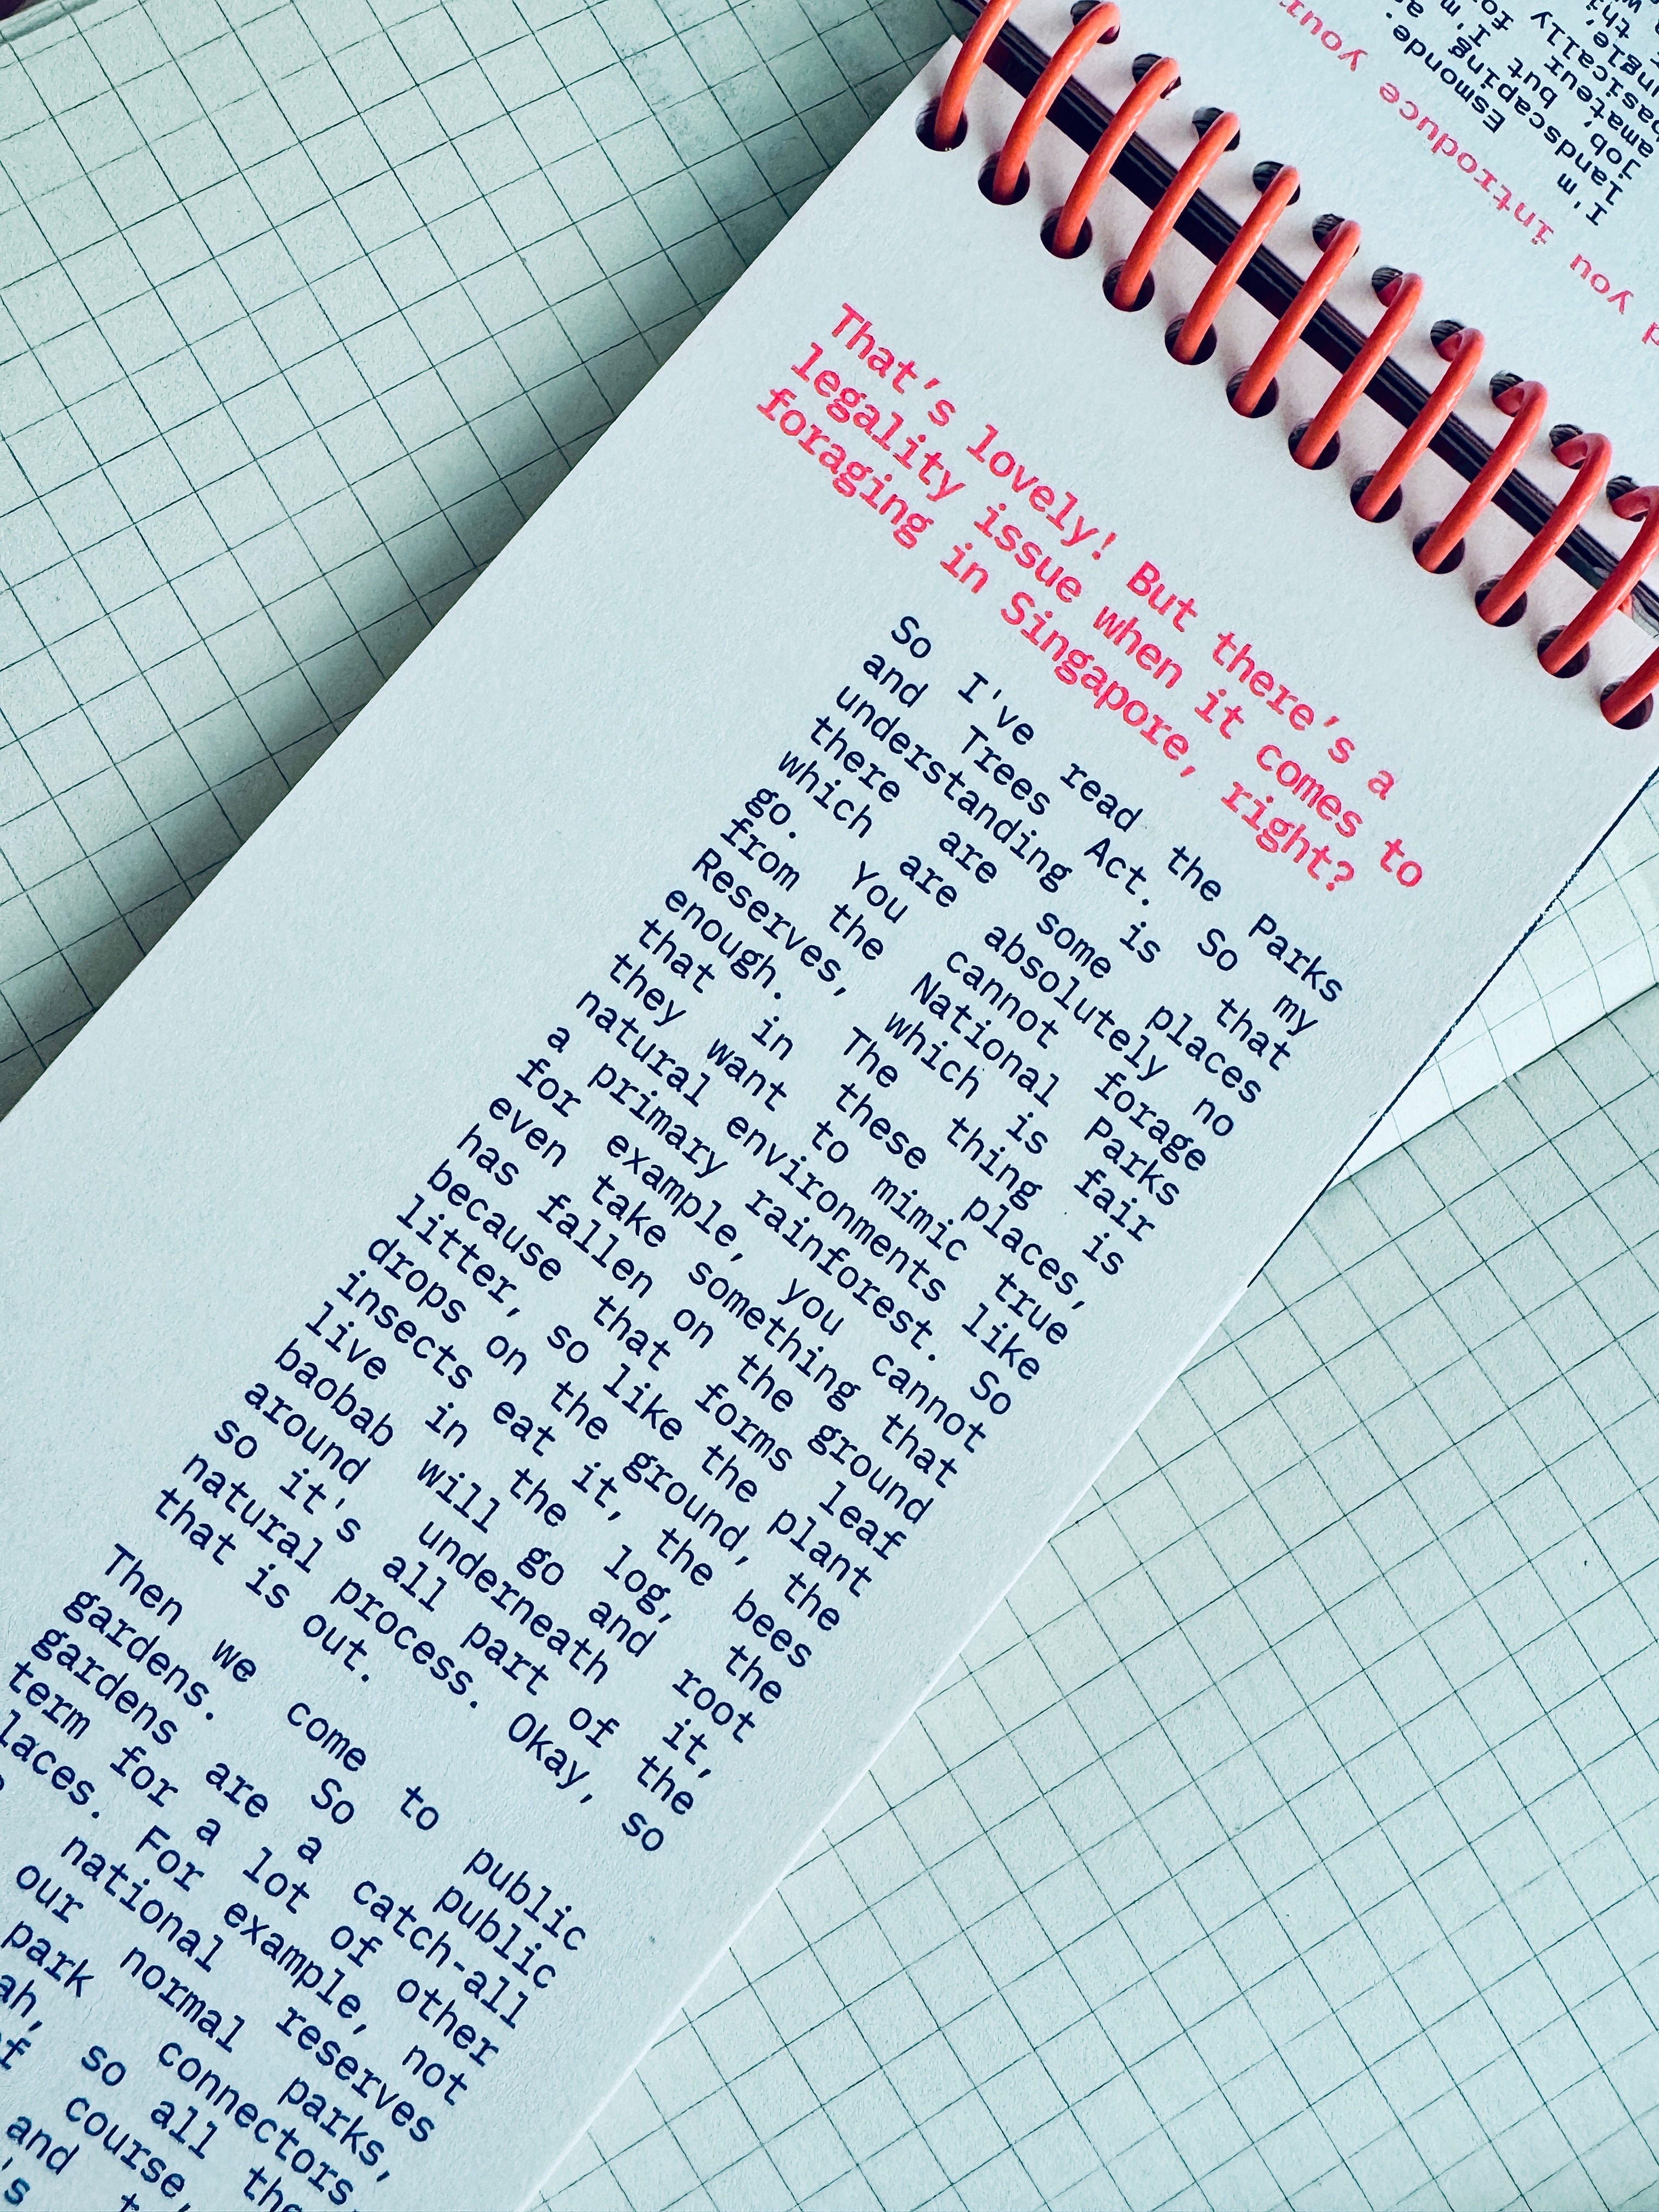 you introduce your
I'm Esmonde.
landscaping
job, I'm a
amateur but for
That's lovely! But there's a
legality issue when it comes to
foraging in Singapore, right?
So I've read the Parks
and Trees Act. So my
understanding is that
there are some places
which are absolutely no
go. You cannot forage
from the National Parks
Reserves, which is fair
enough. The thing is
that in these places,
they want to mimic true
natural environments like
a primary rainforest. So
for example, you cannot
even take something that
has fallen on the ground
because that forms leaf
litter, so like the plant
drops on the ground, the
insects eat it, the bees
live in the log, the
baobab will go and root
around underneath it,
so it's all part of the
natural process. Okay, so
that is out.
Then we come to public
gardens. So public
gardens are a catch-all
term for a lot of other
For example, not
national reserves
our normal parks,
park connectors,
so all the
course,
and